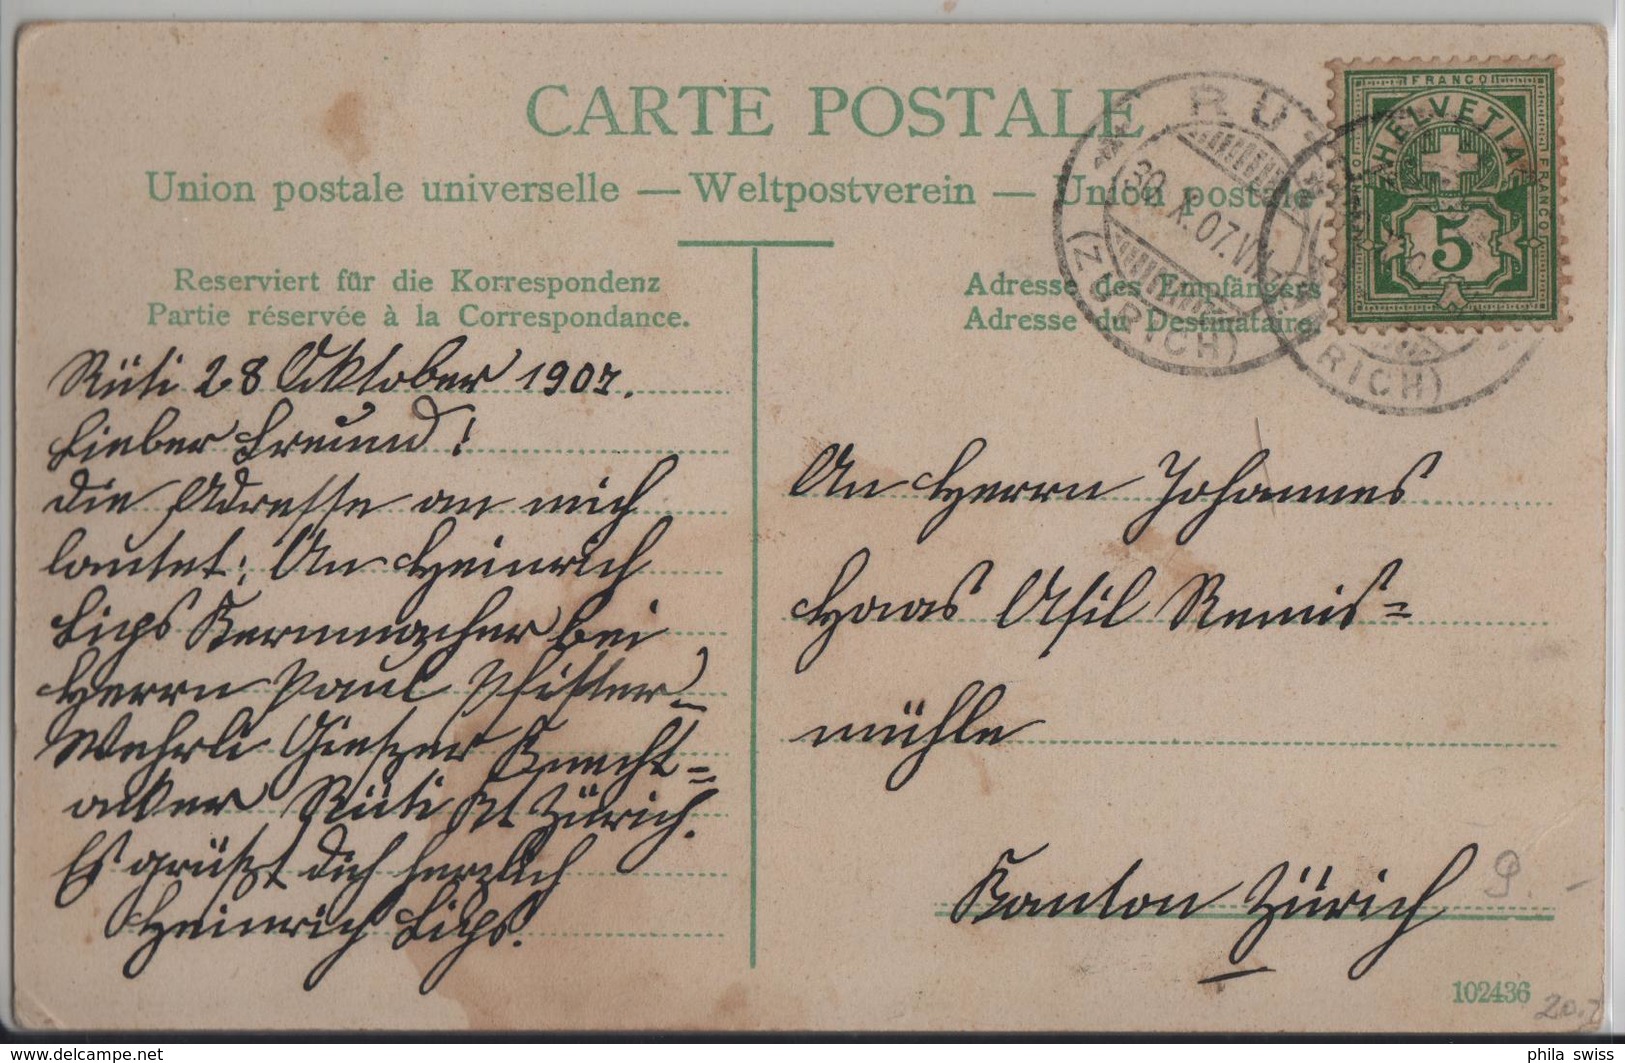 CARTE POSTALE
Union postale universelle — Weltpostverein — Union postale
Reserviert für die Korrespondenz
Partie réservée à la Correspondance.
Adresse des Empfängers
Adresse du Destinataire.
FRANCO
HELVETIA
FRANCO
5
RÜ
30. X. 07. VII
(ZÜRICH)
RICH)
Rüti 28 Oktober 1907.
Lieber Freund!
Die Adresse an mich
lautet: An Heinrich
Lips Kernmacher bei
Herrn Paul Pfister-
Wehrli Gietzer Knecht=
acker Rüti Kt Zürich.
Es grüßt dich herzlich
Heinrich Lips.
An Herrn Johannes
Haas Asil Remis=
mühle
Kanton Zürich
102436
phila swiss